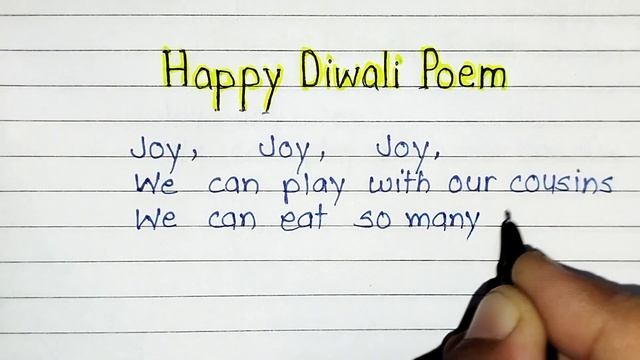 Happy Diwali Poem
Joy, Joy, Joy,
We can play with our cousins
We can eat so many